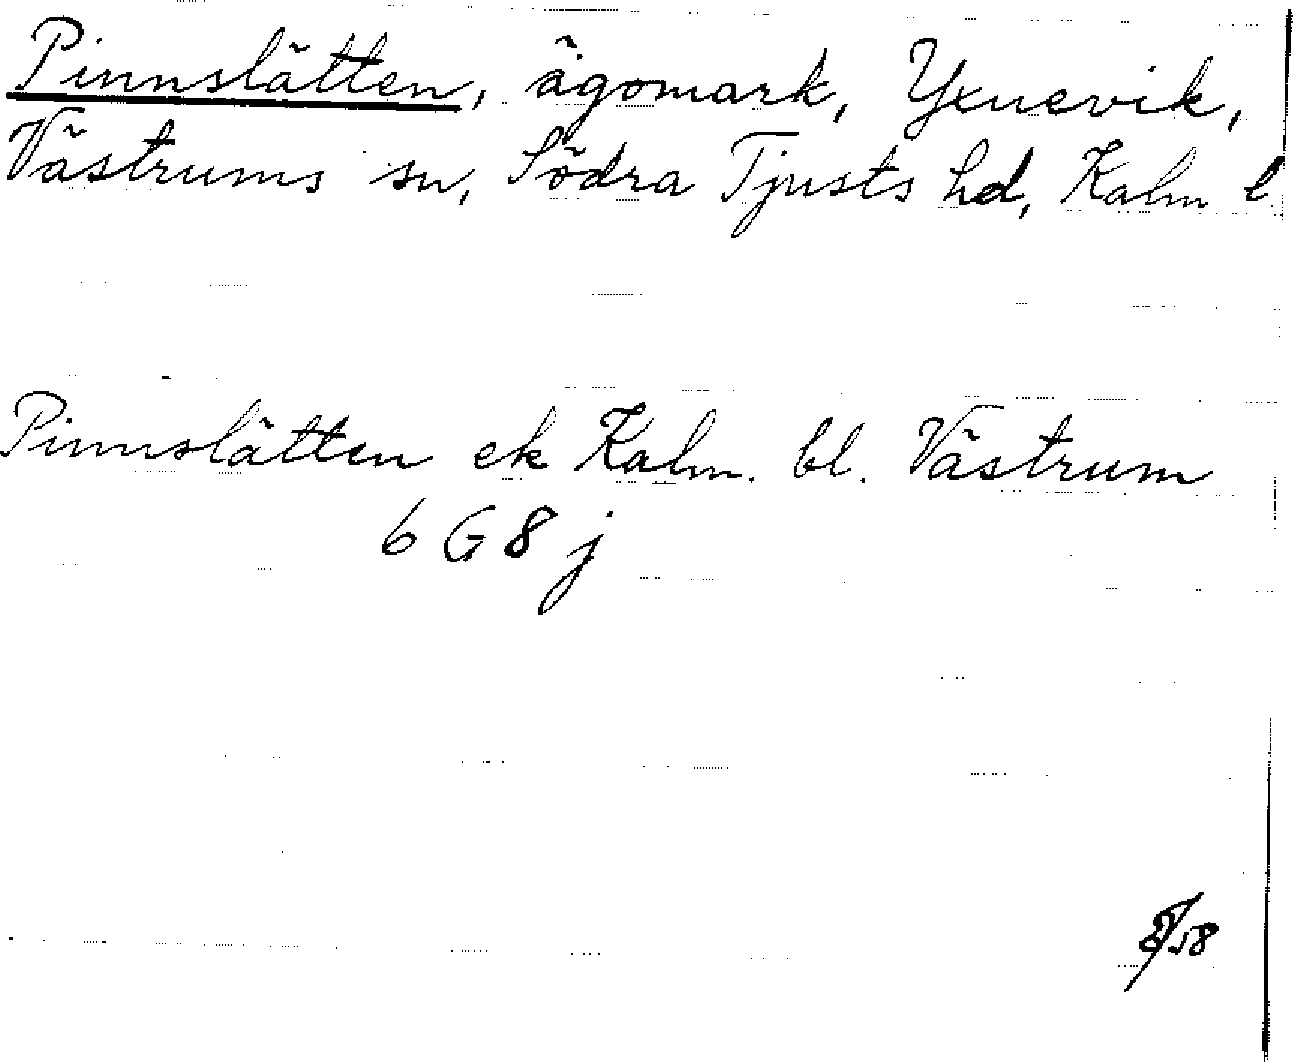 Pinnslätten, ägomark, Yxnevik,
Västrums sn, Södra Tjusts hd, Kalm l
Pinnslätten ek Kalm. bl. Västrum
6 G 8 j